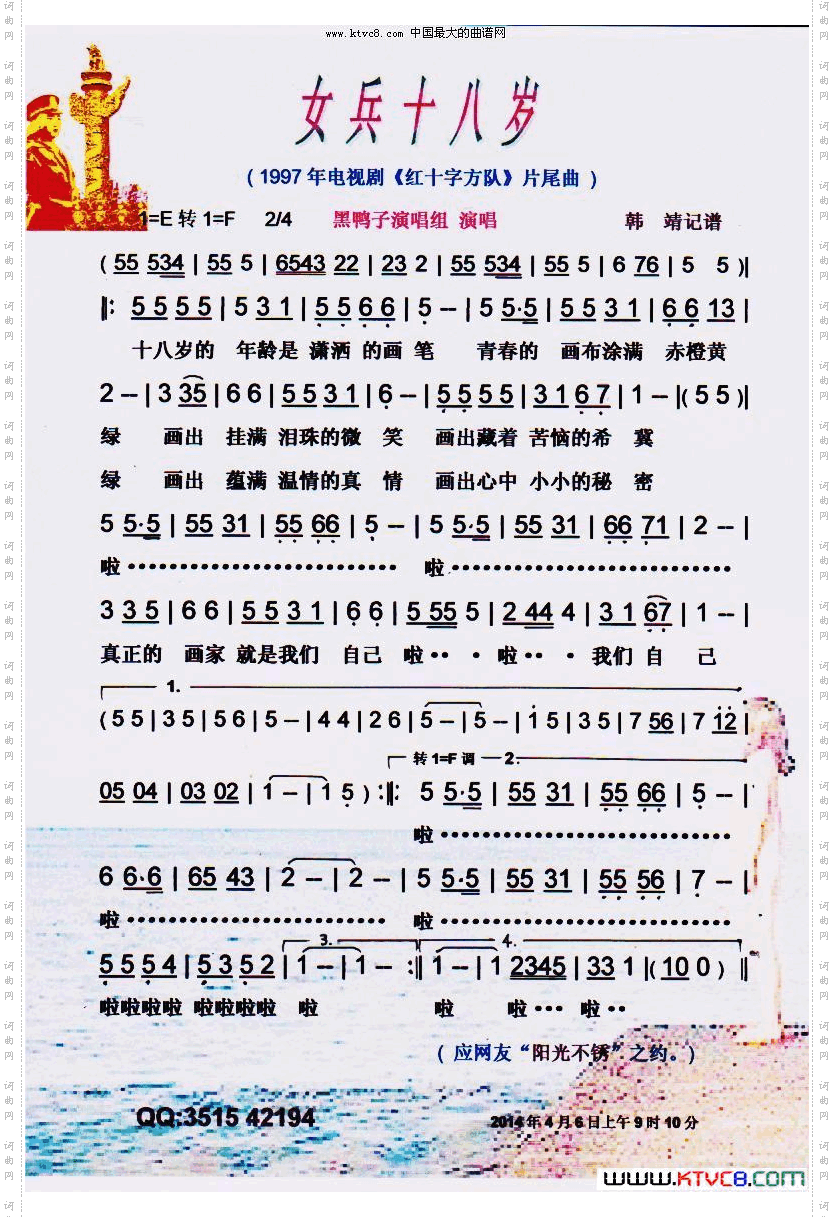 www.ktvc8.com 中国最大的曲谱网
女兵十八岁
( 1997 年电视剧《红十字方队》片尾曲 )
1=E 转 1=F 2/4 黑鸭子演唱组 演唱 韩 靖记谱
( 55 534 | 55 5 | 6543 22 | 23 2 | 55 534 | 55 5 | 6 76 | 5 5 )|
‖: 5 5 5 5 | 5 3 1 | 5 5 6 6 | 5 – | 5 5·5 | 5 5 3 1 | 6 6 1 3 |
十八岁的 年龄是 潇洒 的画 笔 青春的 画布涂满 赤橙黄
2 – | 3 35 | 6 6 | 5 5 3 1 | 6 – | 5 5 5 5 | 3 1 6 7 | 1 – |( 5 5 )|
绿 画出 挂满 泪珠的微 笑 画出藏着 苦恼的希 冀
绿 画出 蕴满 温情的真 情 画出心中 小小的秘 密
5 5·5 | 55 31 | 55 66 | 5 – | 5 5·5 | 55 31 | 66 71 | 2 – |
啦························ 啦··························
3 3 5 | 6 6 | 5 5 3 1 | 6 6 | 5 55 5 | 2 44 4 | 3 1 67 | 1 – |
真正的 画家 就是我们 自己 啦·· · 啦·· · 我们 自 己
1.
( 5 5 | 3 5 | 5 6 | 5 – | 4 4 | 2 6 | 5 – | 5 – | 1 5 | 3 5 | 7 56 | 7 12 |
转 1=F 调 2.
05 04 | 03 02 | 1 – | 1 5 ) :‖: 5 5·5 | 55 31 | 55 66 | 5 – |
啦··························
6 6·6 | 65 43 | 2 – | 2 – | 5 5·5 | 55 31 | 55 56 | 7 – |
啦························ 啦··························
3. 4.
5 5 5 4 | 5 3 5 2 | 1 – | 1 – :‖ 1 – | 1 2345 | 33 1 |( 10 0 ) ‖
啦啦啦啦 啦啦啦啦 啦 啦 啦··· 啦··
( 应网友“阳光不锈”之约。)
QQ:3515 42194 2014 年 4 月 6 日上午 9 时 10 分
www.KTVC8.com
词曲网